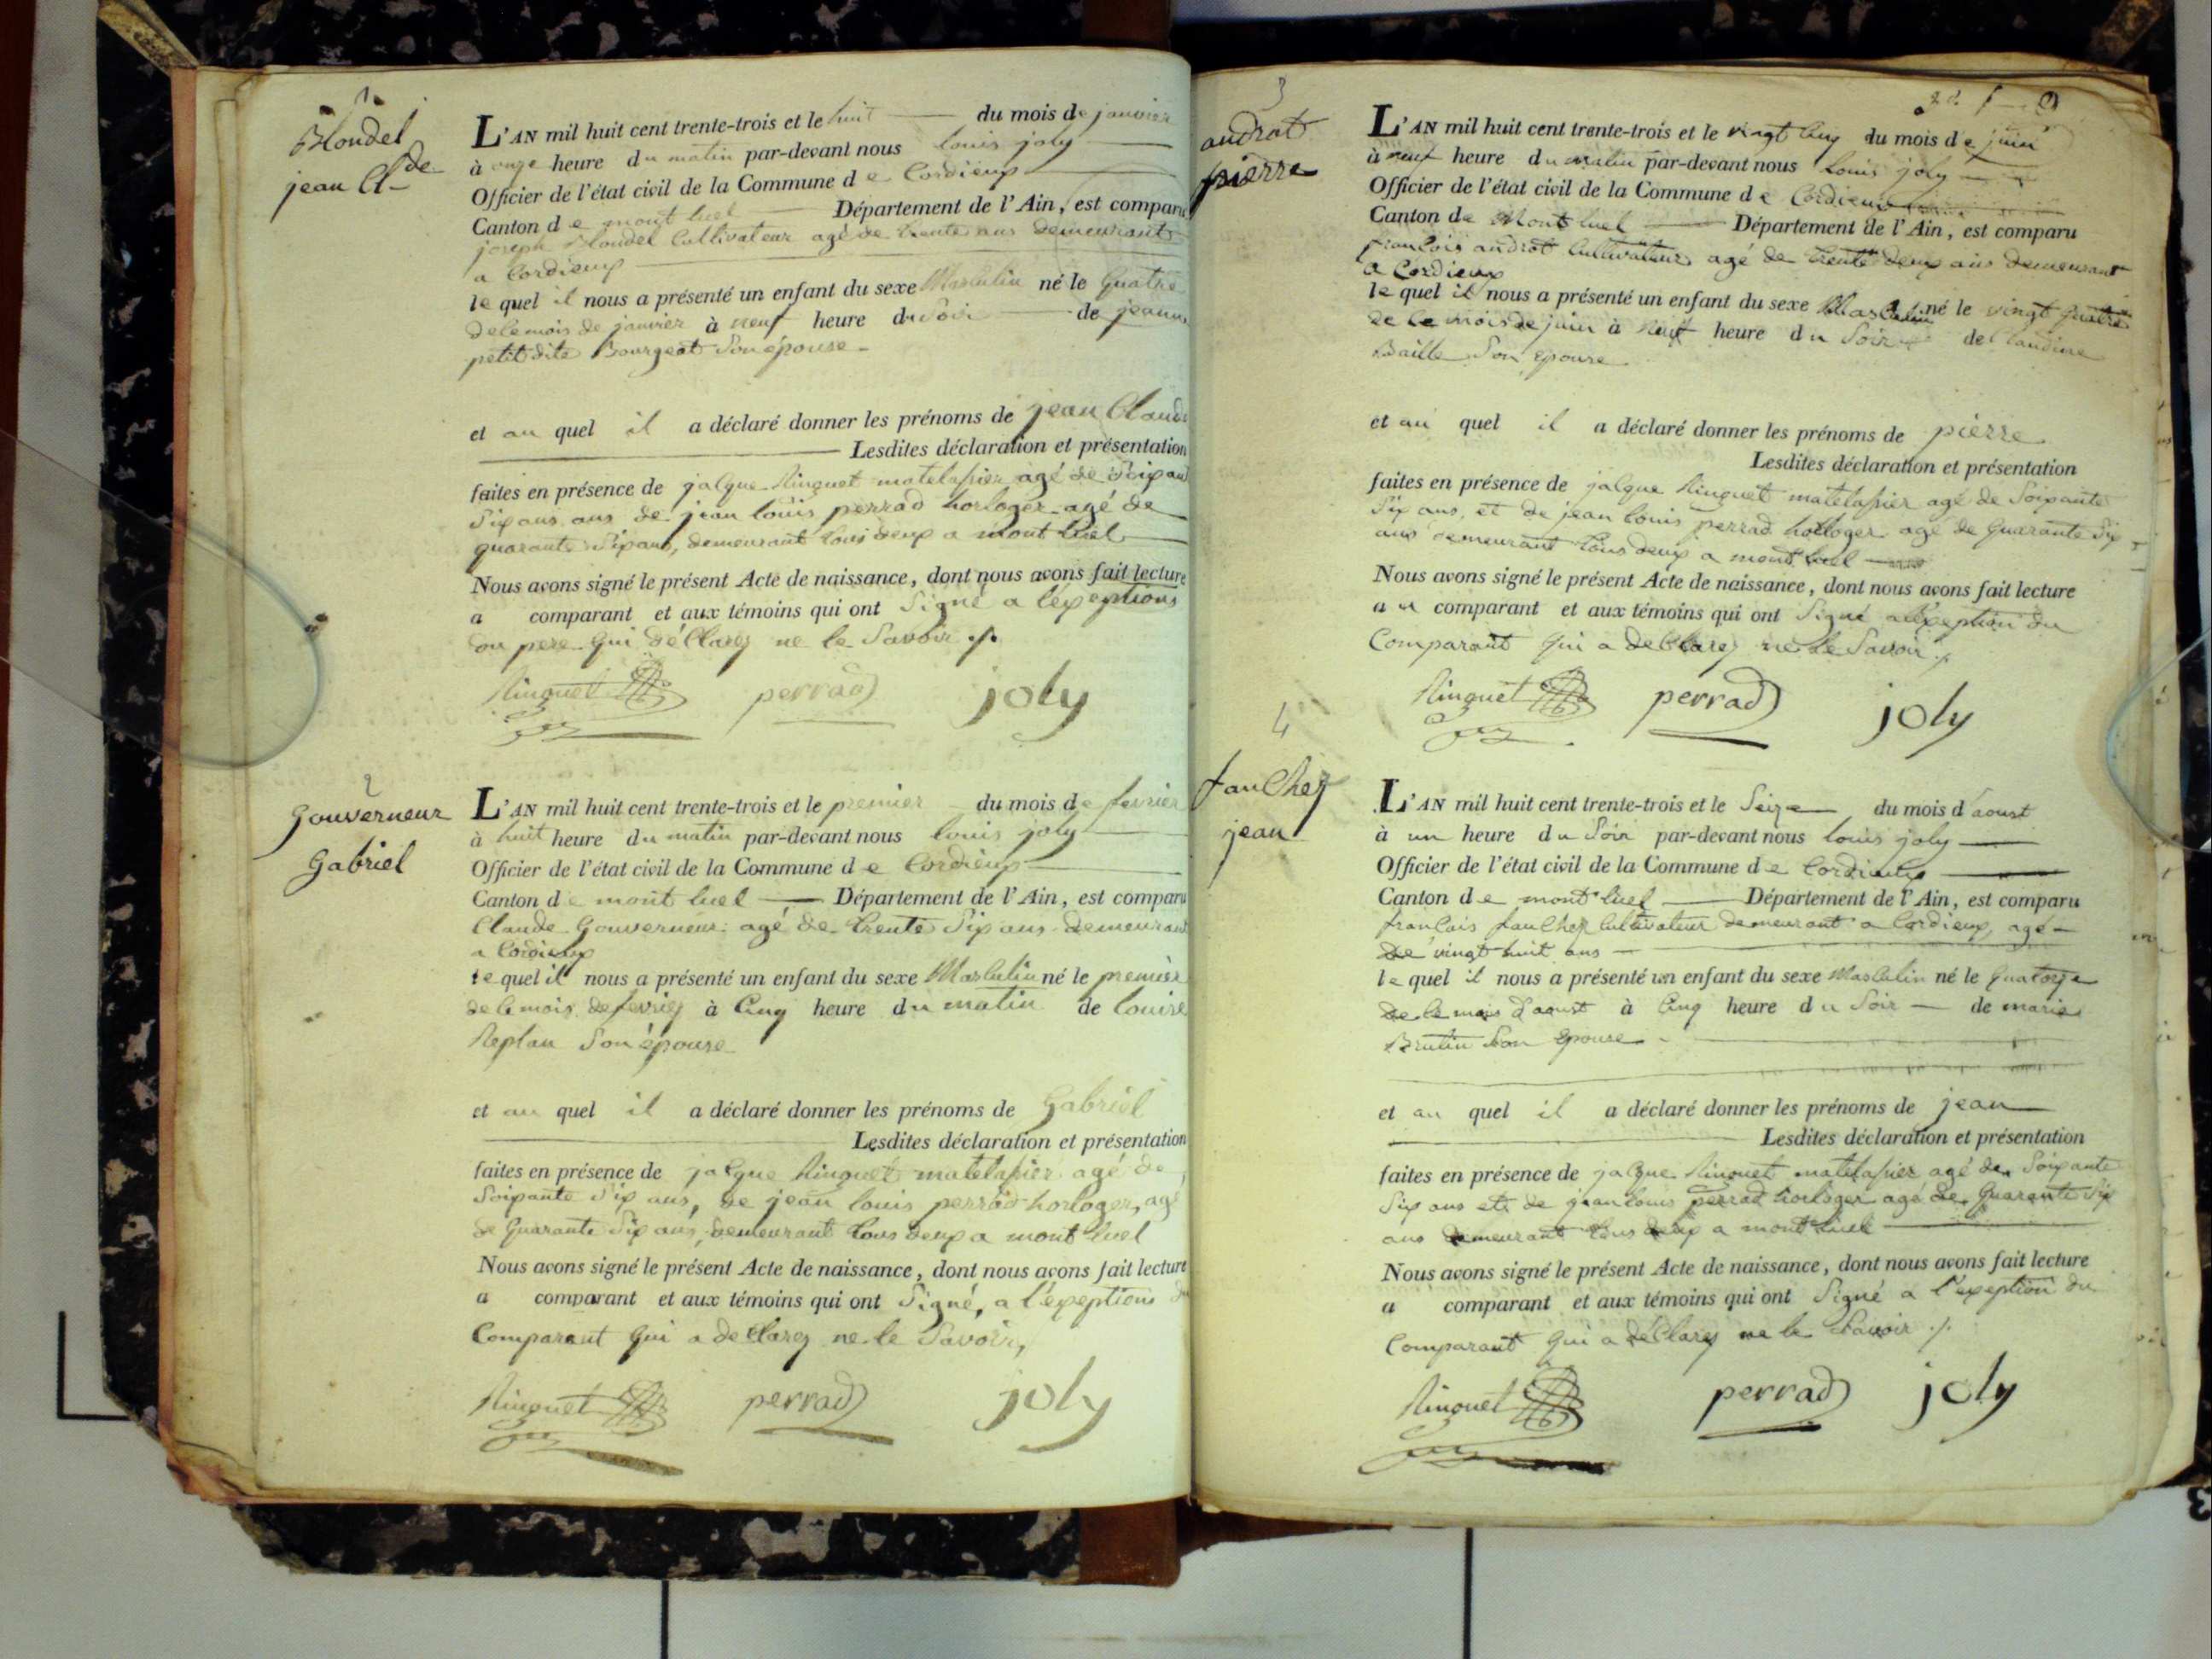 1
Blondel
jean Cl de
L'AN mil huit cent trente-trois et le huit du mois de janvier
à onze heure du matin par-devant nous louis joly
Officier de l'état civil de la Commune de Cordieux
Canton de mont luel Département de l'Ain, est comparu
joseph Blondel Cultivateur agé de trente ans demeurant
a Cordieux
le quel il nous a présenté un enfant du sexe Masculin né le quatre
de le mois de janvier à neuf heure du Soir de jeanne
petit dite Bourgeat Son épouse
et au quel il a déclaré donner les prénoms de jean Claude
Lesdites déclaration et présentation
faites en présence de jalque Ringuet matelassier agé de Soixante
Six ans ans de jean louis perrad horloger agé de
quarante Six ans, demeurant tous deux a mont luel
Nous avons signé le présent Acte de naissance, dont nous avons fait lecture
a comparant et aux témoins qui ont Signé a l'exeptions
du pere qui déClarez ne le Savoir ./.
Ringuet perrad joly
2
Gouverneur
Gabriel
L'AN mil huit cent trente-trois et le premier du mois de fevrier
à huit heure du matin par-devant nous louis joly
Officier de l'état civil de la Commune de Cordieux
Canton de mont luel Département de l'Ain, est comparu
Claude Gouverneur agé de trente Six ans demeurant
a Cordieux
le quel il nous a présenté un enfant du sexe Masculin né le premier
de le mois de fevriez à Cinq heure du matin de louise
Replan Son épouse
et au quel il a déclaré donner les prénoms de Gabriel
Lesdites déclaration et présentation
faites en présence de jalque Ringuet matelassier agé de
Soixante Six ans, de jean louis perrad horloger, agé
de Quarante Six ans, demeurant tous deux a mont luel
Nous avons signé le présent Acte de naissance, dont nous avons fait lecture
a comparant et aux témoins qui ont Signé, a l'exeptions du
Comparant Qui a deClarez ne le Savoir,
Ringuet perrad joly
3
androt
pierre
L'AN mil huit cent trente-trois et le vingt Cinq du mois de juin
à neuf heure du matin par-devant nous louis joly
Officier de l'état civil de la Commune de Cordieux
Canton de Mont luel Département de l'Ain, est comparu
francois androt Cultivateur agé de trente deux ans demeurant
a Cordieux
le quel il nous a présenté un enfant du sexe Masculin né le vingt quatre
de le mois de juin à neuf heure du Soir de Claudine
Baille Son épouse
et au quel il a déclaré donner les prénoms de pierre
Lesdites déclaration et présentation
faites en présence de jalque Ringuet matelassier agé de Soixante
Six ans, et de jean louis perrad horloger agé de Quarante Six
ans demeurant tous deux a mont luel
Nous avons signé le présent Acte de naissance, dont nous avons fait lecture
au comparant et aux témoins qui ont Signé a l'exeption du
Comparant Qui a deClarez ne le Savoir ./.
Ringuet perrad joly
4
fauChez
jean
L'AN mil huit cent trente-trois et le Seize du mois d'aoust
à un heure du Soir par-devant nous louis joly
Officier de l'état civil de la Commune de Cordieux
Canton de mont luel Département de l'Ain, est comparu
francais fauChez Cultivateur demeurant a Cordieux, agé
de vingt huit ans
le quel il nous a présenté un enfant du sexe Masculin né le Quatorze
de le mois d'aoust à Cinq heure du Soir de marie
Brutin Son Epouse
et au quel il a déclaré donner les prénoms de jean
Lesdites déclaration et présentation
faites en présence de jalque Ringuet matelassier agé de Soixante
Six ans et de jean louis perrad horloger agé de Quarante Six
ans demeurant tous deux a mont luel
Nous avons signé le présent Acte de naissance, dont nous avons fait lecture
a comparant et aux témoins qui ont Signé a l'exeption du
Comparant Qui a déClarez ne le Savoir ./.
Ringuet perrad joly